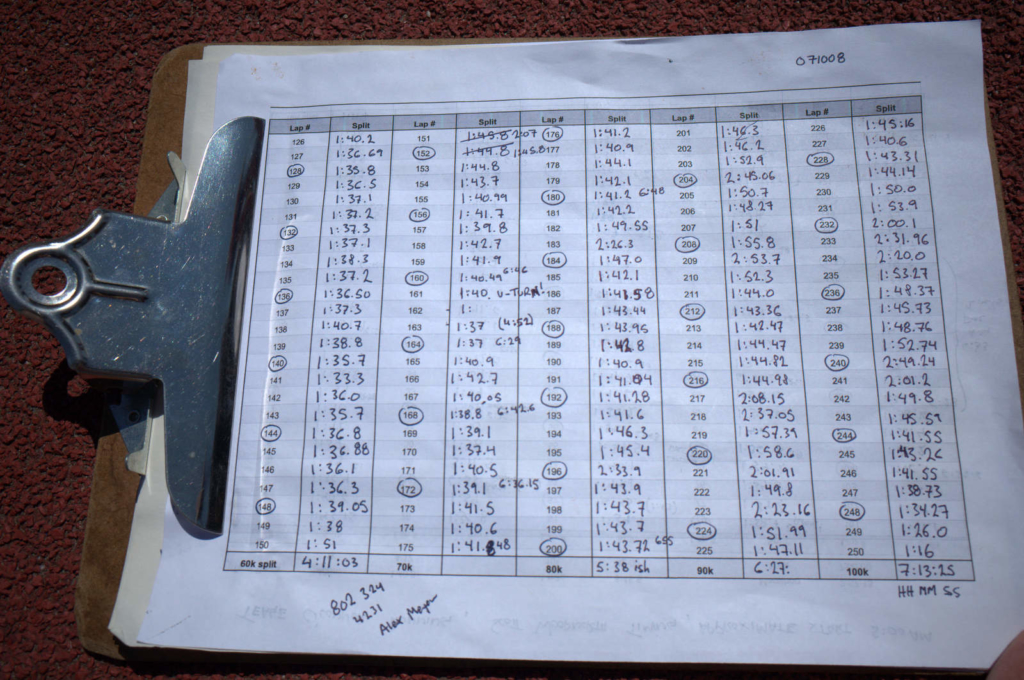 071008
Lap # Split Lap # Split Lap # Split Lap # Split Lap # Split
126 1:40.2 151 1:49.8 2:07 176 1:41.2 201 1:46.3 226 1:45:16
127 1:36.69 152 1:44.8 1:45.8 177 1:40.9 202 1:46.2 227 1:40.6
128 1:35.8 153 1:44.8 178 1:44.1 203 1:52.9 228 1:43.31
129 1:36.5 154 1:43.7 179 1:42.1 204 2:45.06 229 1:44.14
130 1:37.1 155 1:40.99 180 1:41.2 6:48 205 1:50.7 230 1:50.0
131 1:37.2 156 1:41.7 181 1:42.2 206 1:48.27 231 1:53.9
132 1:37.3 157 1:39.8 182 1:49.55 207 1:51 232 2:00.1
133 1:37.1 158 1:42.7 183 2:26.3 208 1:55.8 233 2:31.96
134 1:38.3 159 1:41.9 184 1:47.0 209 2:53.7 234 2:20.0
135 1:37.2 160 1:40.49 6:46 185 1:42.1 210 1:52.3 235 1:53.27
136 1:36.50 161 1:40. U-TURN! 186 1:41.58 211 1:44.0 236 1:48.37
137 1:37.3 162 1: 187 1:43.44 212 1:43.36 237 1:45.73
138 1:40.7 163 1:37 (4:52) 188 1:43.95 213 1:42.47 238 1:48.76
139 1:38.8 164 1:37 6:29 189 1:42.8 214 1:44.47 239 1:52.74
140 1:35.7 165 1:40.9 190 1:40.9 215 1:44.82 240 2:49.24
141 1:33.3 166 1:42.7 191 1:41.04 216 1:44.98 241 2:01.2
142 1:36.0 167 1:40.05 192 1:41.28 217 2:08.15 242 1:49.8
143 1:35.7 168 1:38.8 6:42.6 193 1:41.6 218 2:37.05 243 1:45.59
144 1:36.8 169 1:39.1 194 1:46.3 219 1:57.39 244 1:41.55
145 1:36.88 170 1:37.4 195 1:45.4 220 1:58.6 245 1:43.26
146 1:36.1 171 1:40.5 196 2:33.9 221 2:01.91 246 1:41.55
147 1:36.3 172 1:39.1 6:36.15 197 1:43.9 222 1:49.8 247 1:38.73
148 1:39.05 173 1:41.5 198 1:43.7 223 2:23.16 248 1:34.27
149 1:38 174 1:40.6 199 1:43.7 224 1:51.99 249 1:26.0
150 1:51 175 1:41.848 200 1:43.72 655 225 1:47.11 250 1:16
60k split 4:11:03 70k 80k 5:38 ish 90k 6:27: 100k 7:13:25
HH MM SS
802 324
4231
Alex